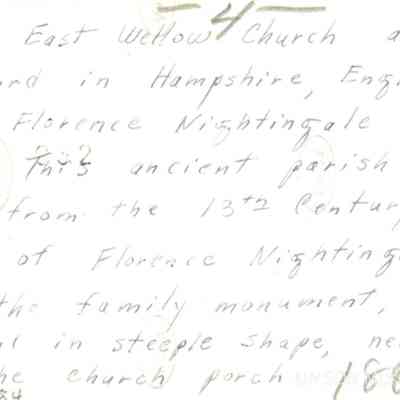 -4-
East Wellow Church a
rd in Hampshire, Eng
Florence Nightingale
This ancient parish
from the 13th Century
of Florence Nighting
the family monument,
in steeple shape, ne
he church porch 188